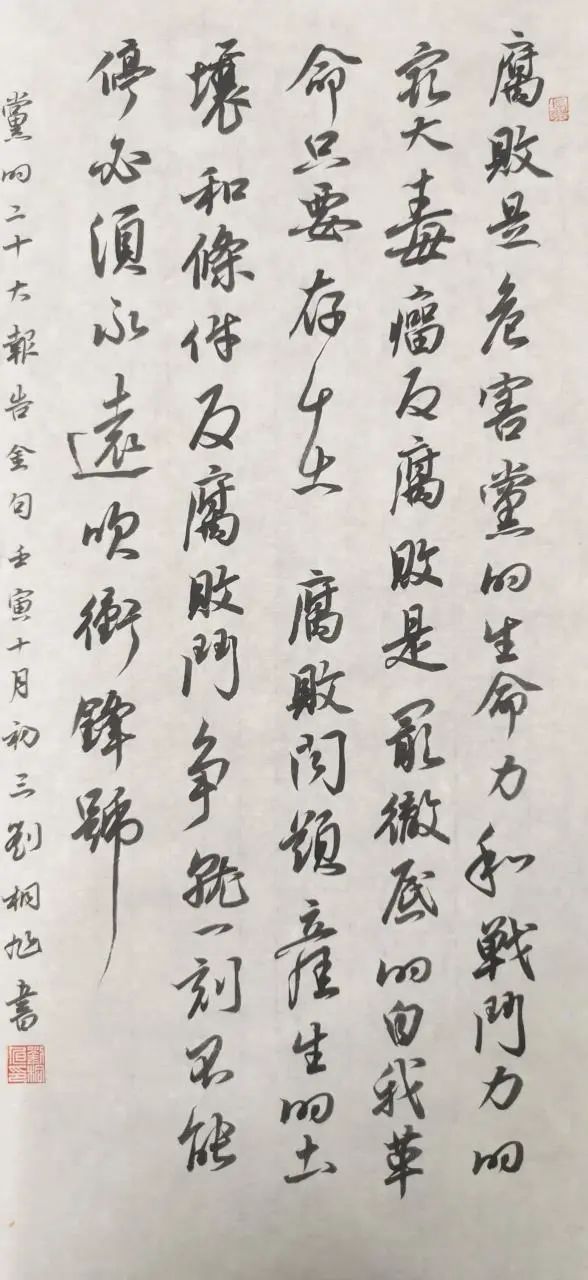 腐敗是危害黨的生命力和戰鬥力的
最大毒瘤反腐敗是最徹底的自我革
命只要存在腐敗問題產生的土
壤和條件反腐敗鬥争就一刻不能
停必須永遠吹衝鋒號
黨的二十大報告金句壬寅十月初三劉桐旭書